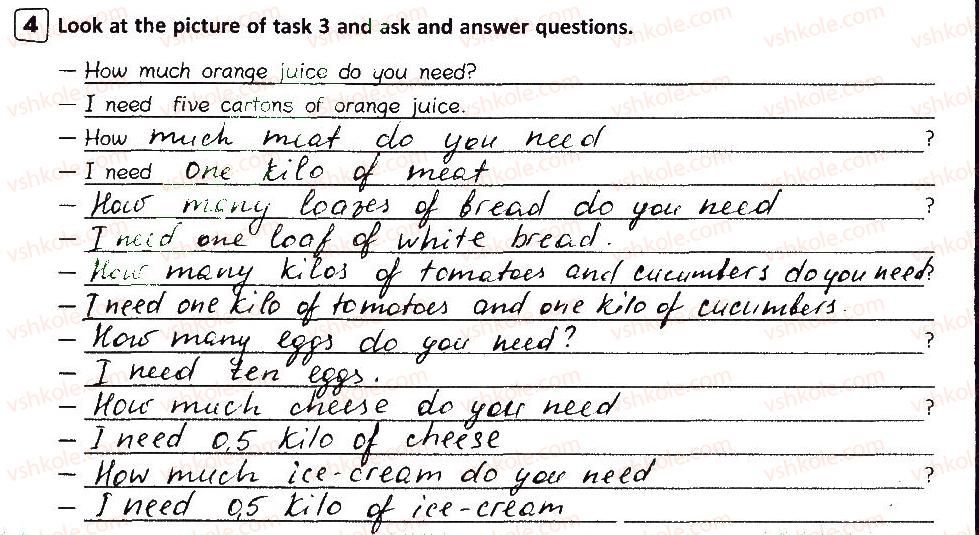 4 Look at the picture of task 3 and ask and answer questions.
– How much orange juice do you need?
– I need five cartons of orange juice.
– How much meat do you need ?
– I need one kilo of meat
– How many loaves of bread do you need ?
– I need one loaf of white bread.
– How many kilos of tomatoes and cucumbers do you need?
– I need one kilo of tomatoes and one kilo of cucumbers.
– How many eggs do you need? ?
– I need ten eggs.
– How much cheese do you need ?
– I need 0,5 kilo of cheese
– How much ice-cream do you need ?
– I need 0,5 kilo of ice-cream